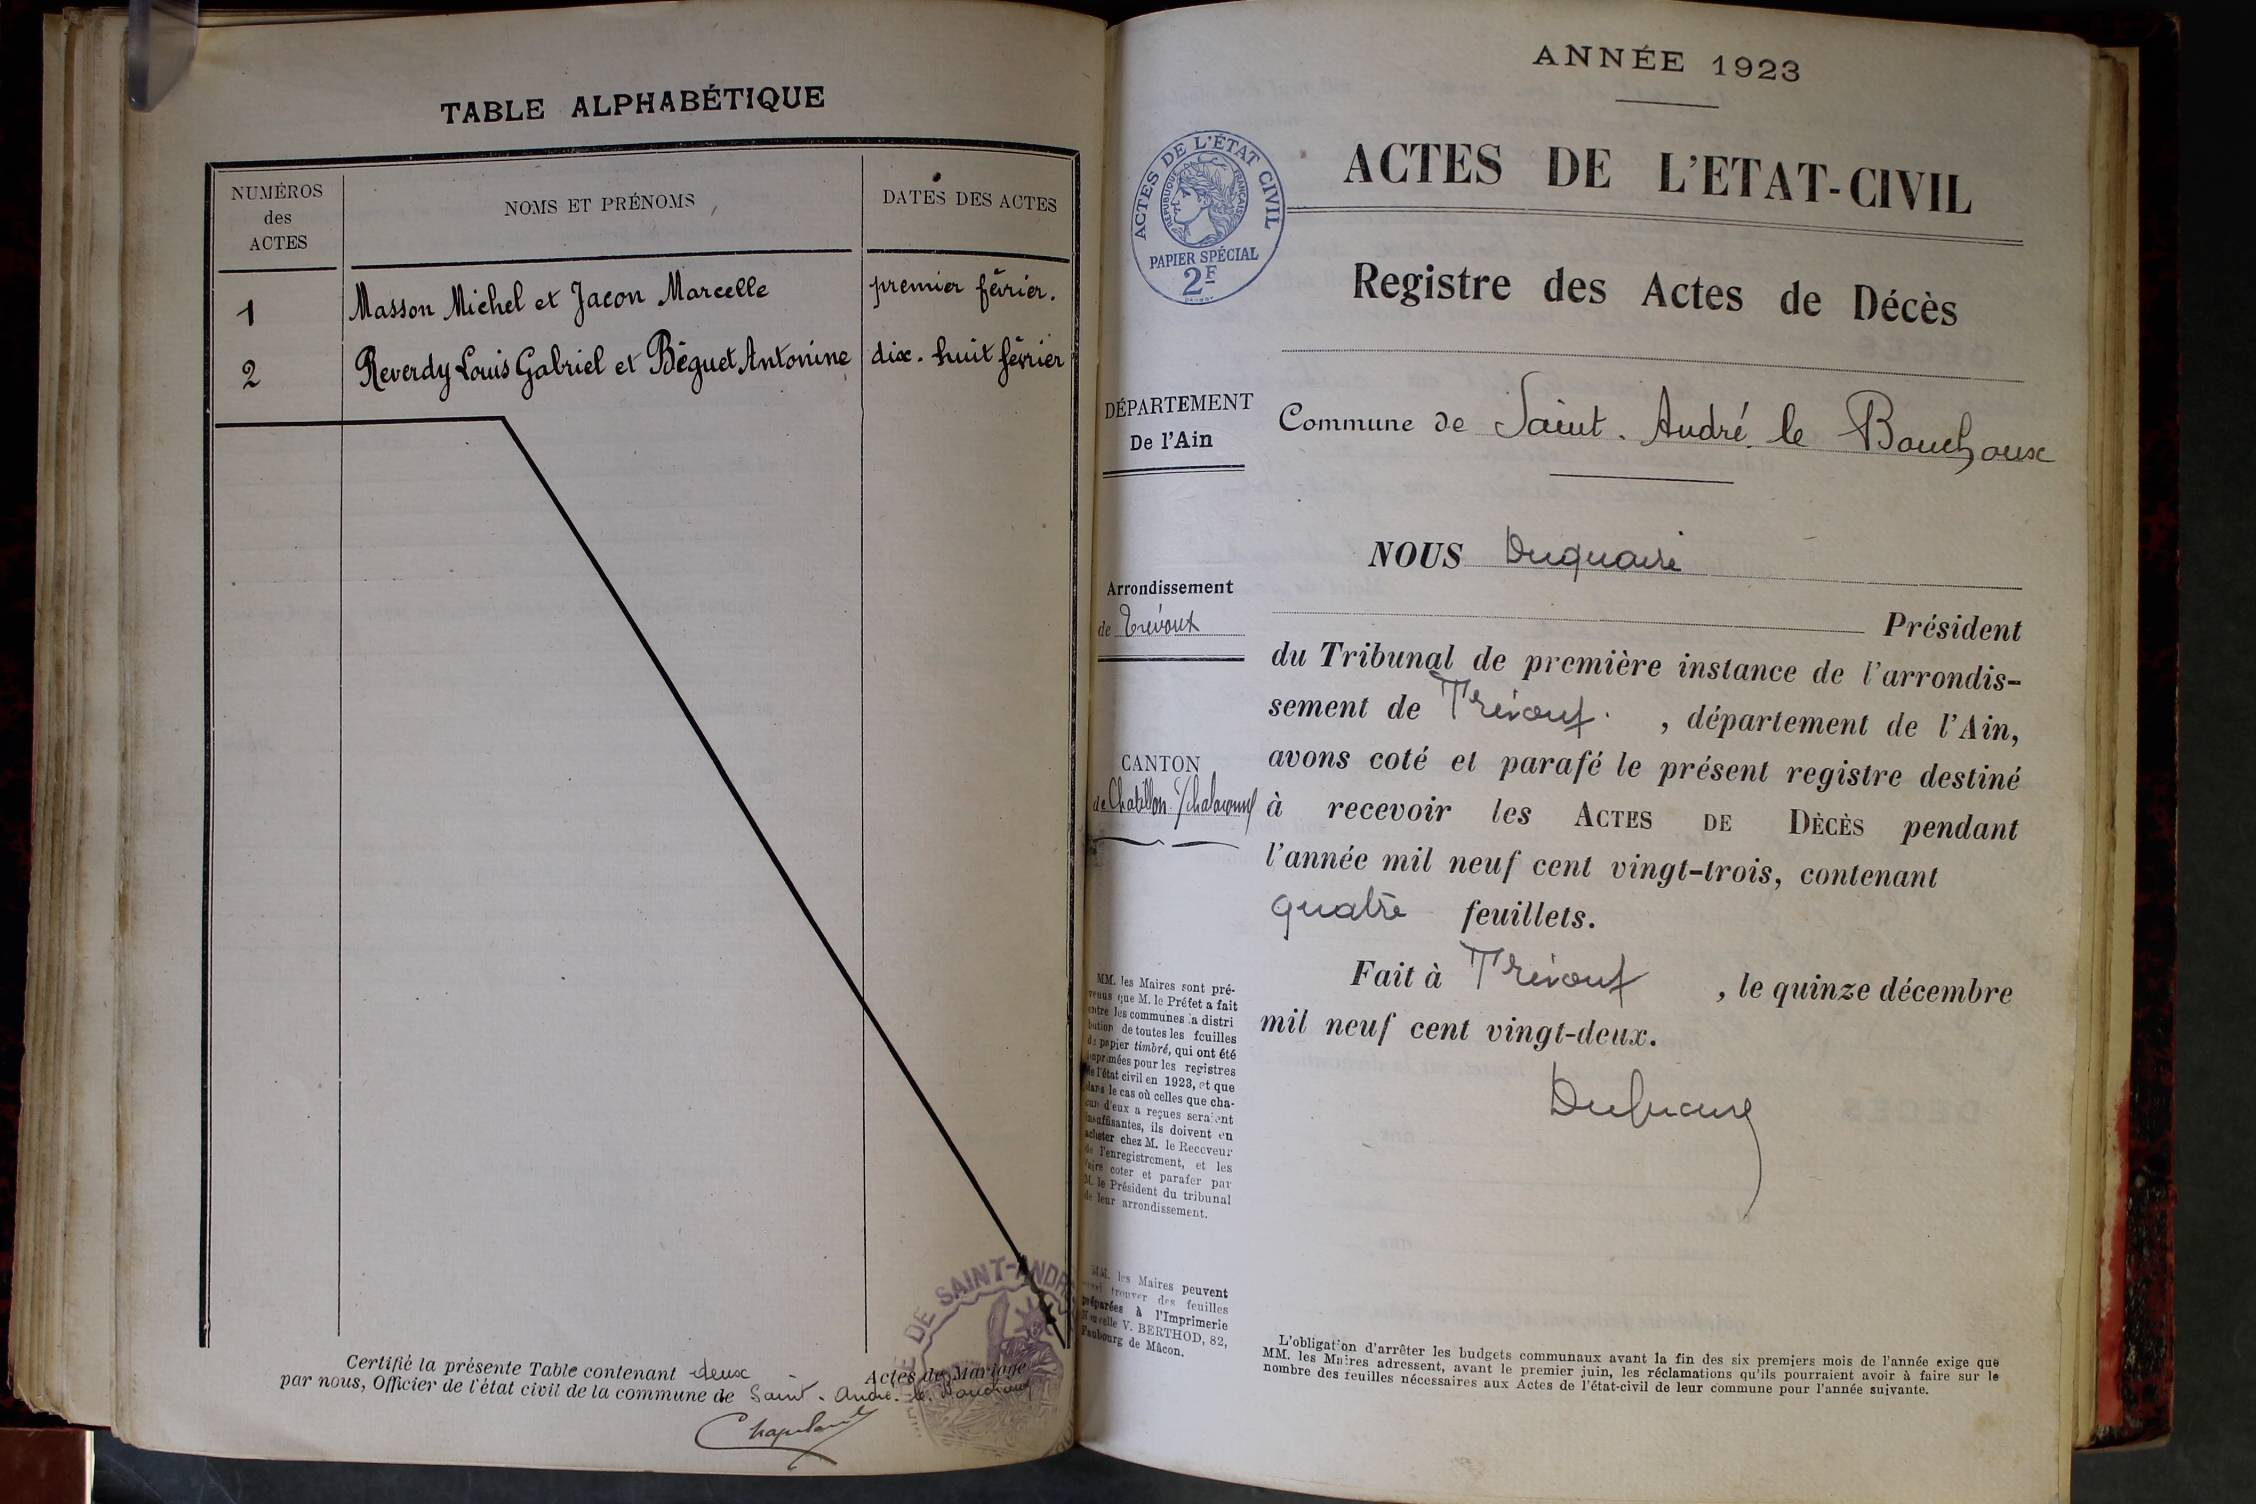 TABLE ALPHABÉTIQUE
NUMÉROS
des
ACTES
NOMS ET PRÉNOMS
DATES DES ACTES
1 Masson Michel et Jacon Marcelle premier février.
2 Reverdy Louis Gabriel et Béguet Antonine dix-huit février
Certifié la présente Table contenant deux Actes de Mariage
par nous, Officier de l'état civil de la commune de Saint-André-le-Bouchoux
DE SAINT-ANDR
ANNÉE 1923
ACTES DE L'ÉTAT CIVIL
RÉPUBLIQUE FRANÇAISE
PAPIER SPÉCIAL
2F
ACTES DE L'ETAT-CIVIL
Registre des Actes de Décès
DÉPARTEMENT
De l'Ain
Commune de Saint-André le Bouchoux
Arrondissement
de Trévoux
CANTON
de Chatillon s/chalaronne
NOUS Duquaire
Président
du Tribunal de première instance de l'arrondis-
sement de Trévoux, département de l'Ain,
avons coté et parafé le présent registre destiné
à recevoir les ACTES DE DÉCÈS pendant
l'année mil neuf cent vingt-trois, contenant
quatre feuillets.
Fait à Trévoux, le quinze décembre
mil neuf cent vingt-deux.
MM. les Maires sont pré-
venus que M. le Préfet a fait
entre les communes la distri
bution de toutes les feuilles
de papier timbré, qui ont été
imprimées pour les registres
de l'état civil en 1923, et que
dans le cas où celles que cha-
cun d'eux a reçues seraient
insuffisantes, ils doivent en
acheter chez M. le Receveur
de l'enregistrement, et les
faire coter et parafer par
M. le Président du tribunal
de leur arrondissement.
MM. les Maires peuvent
aussi trouver des feuilles
préparées à l'Imprimerie
Nouvelle V. BERTHOD, 82,
Faubourg de Mâcon.
L'obligation d'arrêter les budgets communaux avant la fin des six premiers mois de l'année exige que
MM. les Maires adressent, avant le premier juin, les réclamations qu'ils pourraient avoir à faire sur le
nombre des feuilles nécessaires aux Actes de l'état-civil de leur commune pour l'année suivante.